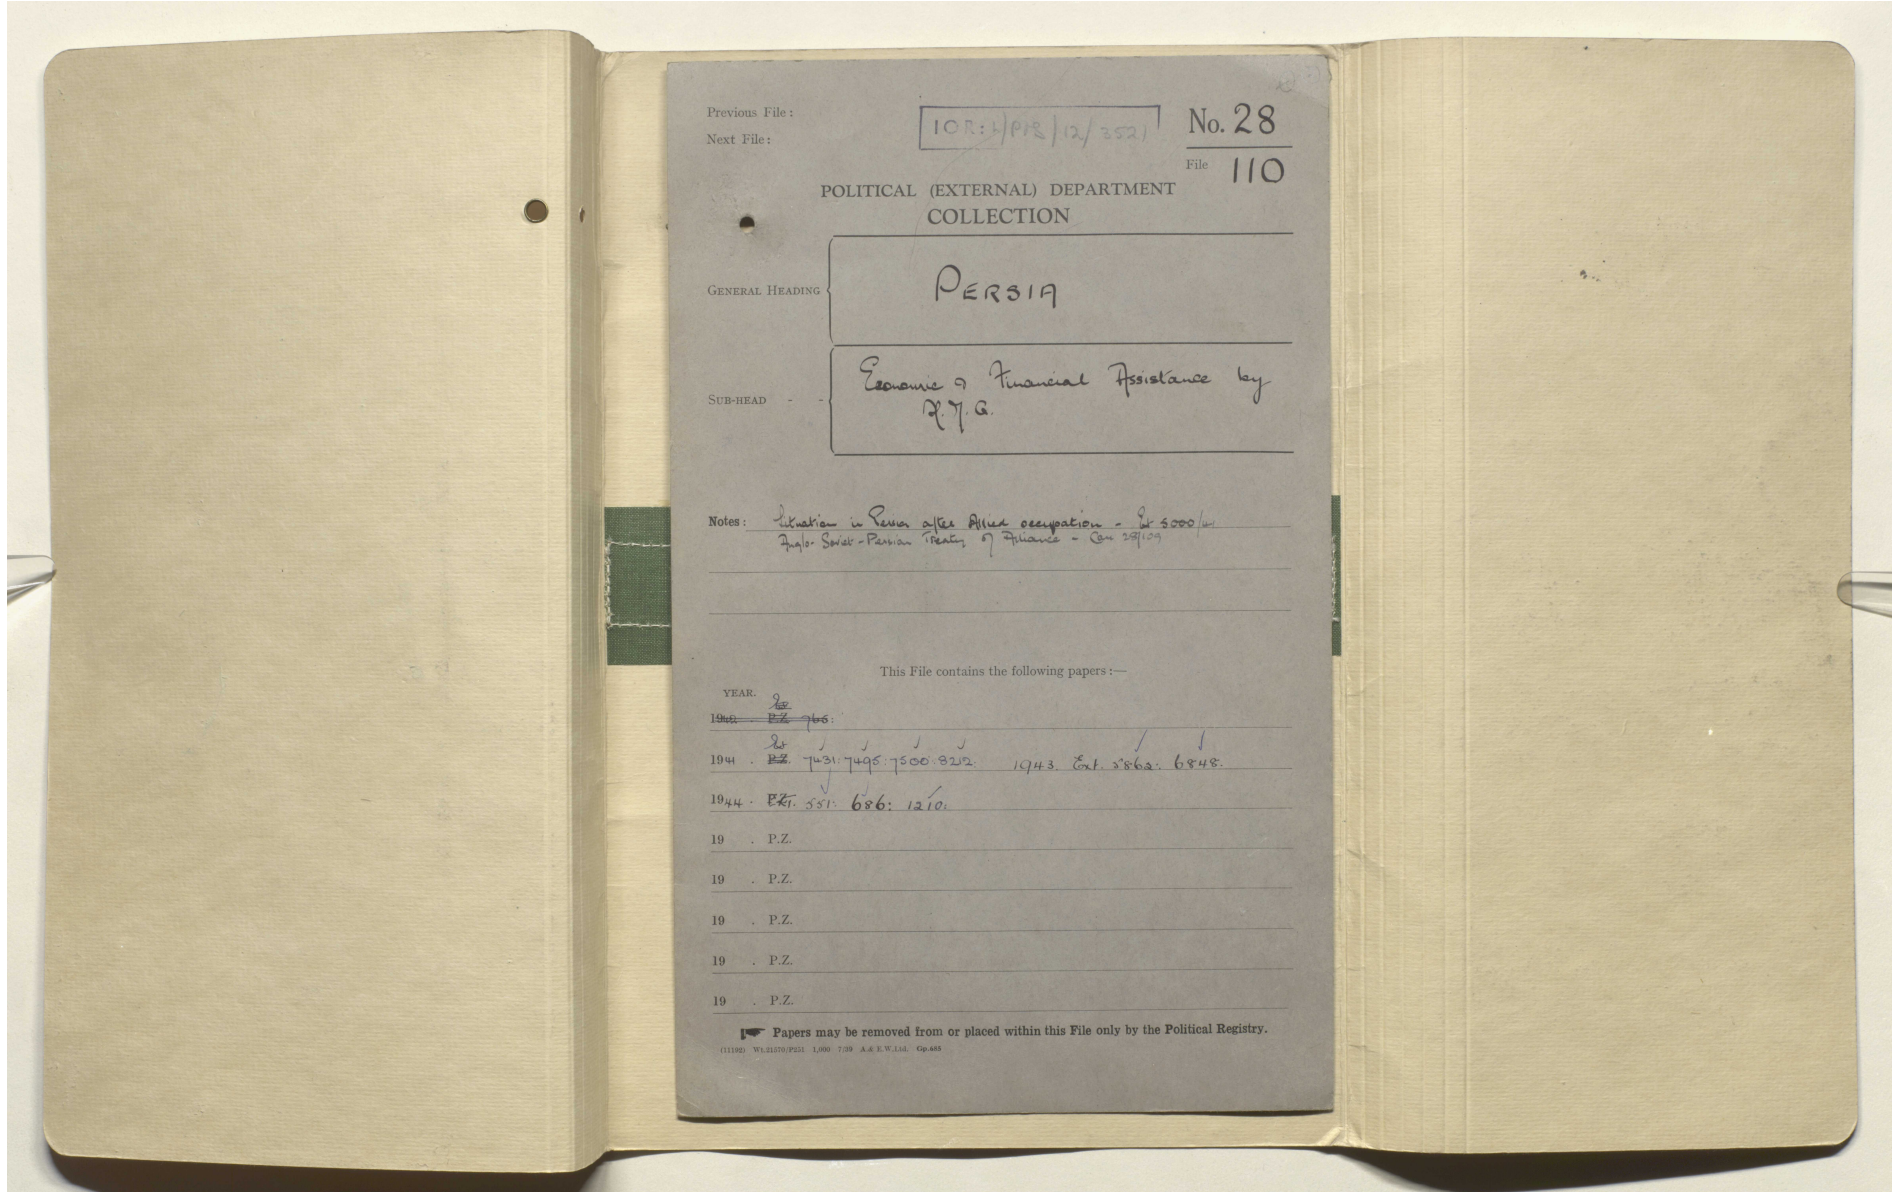 Previous File:
Next File:
IOR:L/P&S/12/3521
No. 28
File 110
POLITICAL (EXTERNAL) DEPARTMENT
COLLECTION
GENERAL HEADING
PERSIA
SUB-HEAD - -
Economic & Financial Assistance by
H.M.G.
Notes: Situation in Persia after Allied occupation - Ext 5000/41
Anglo-Soviet-Persian Treaty of Alliance - Coll 28/109
This File contains the following papers:—
YEAR.
Ext
1942 . P.Z. 765:
Ext
1941 . P.Z. 7431: 7495: 7500: 8212: 1943. Ext. 5862: 6848.
1944 . Ext. 551: 686: 1210:
19 . P.Z.
19 . P.Z.
19 . P.Z.
19 . P.Z.
19 . P.Z.
Papers may be removed from or placed within this File only by the Political Registry.
(11192) Wt.21570/P251 1,000 7/39 A.& E.W.Ltd. Gp.685